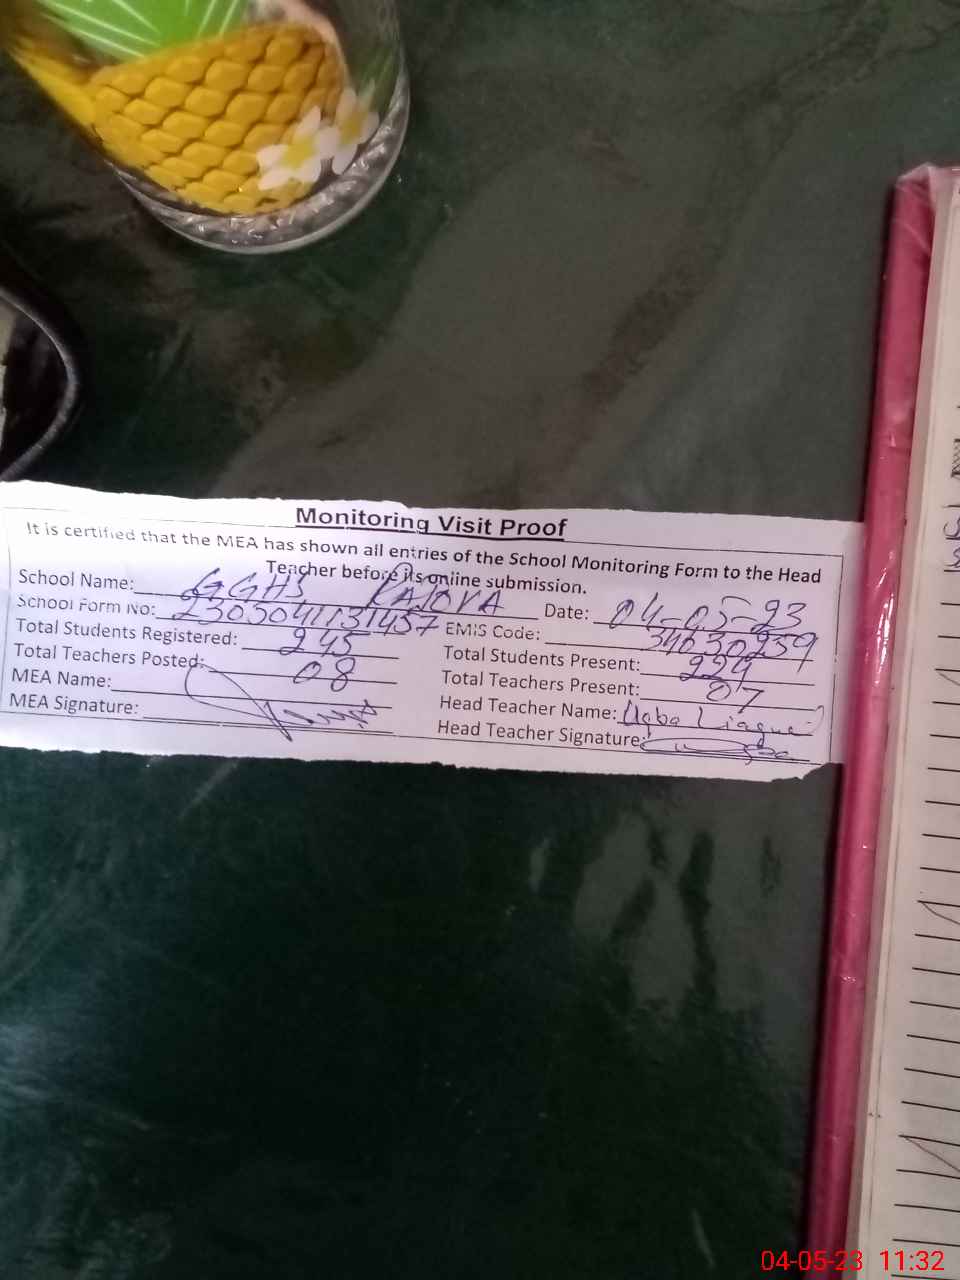 Monitoring Visit Proof
It is certified that the MEA has shown all entries of the School Monitoring Form to the Head
Teacher before its online submission.
School Name: GGHS RAJOYA Date: 04-05-23
School Form No: 2303041131457 EMIS Code: 34630259
Total Students Registered: 245 Total Students Present: 224
Total Teachers Posted: 08 Total Teachers Present: 07
MEA Name: Head Teacher Name:
MEA Signature: Head Teacher Signature:
04-05-23 11:32